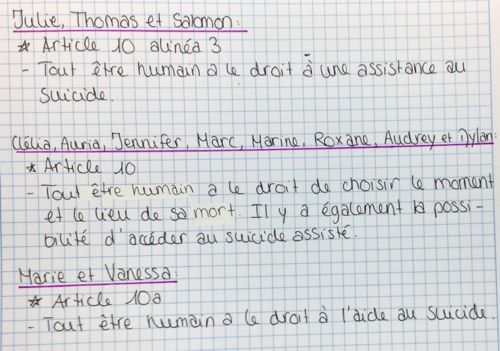 Julie, Thomas et Salomon :
* Article 10 alinéa 3
- Tout être humain a le droit à une assistance au
suicide.
Clélia, Auria, Jennifer, Marc, Marine, Roxane, Audrey et Dylan :
* Article 10
- Tout être humain a le droit de choisir le moment
et le lieu de sa mort. Il y a également la possi-
bilité d'accéder au suicide assisté.
Marie et Vanessa :
* Article 10a
- Tout être humain a le droit à l'aide au suicide.